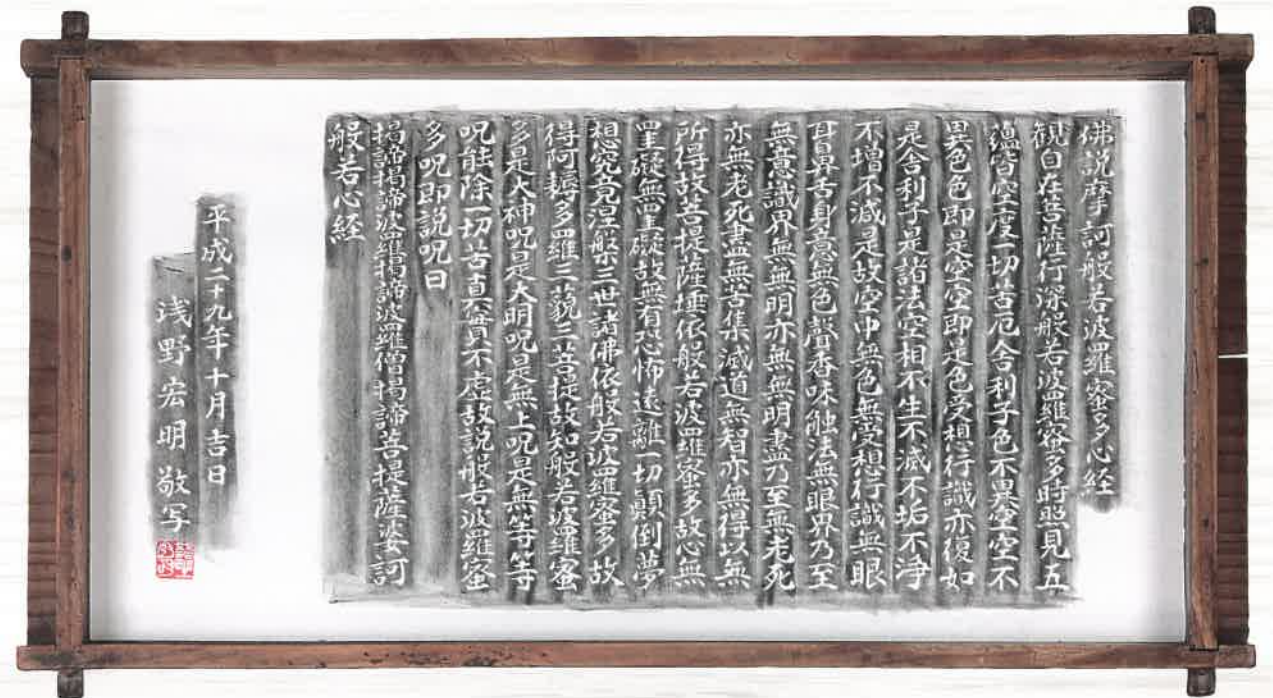 佛説摩訶般若波羅蜜多心経
観自在菩薩行深般若波羅蜜多時照見五
蘊皆空度一切苦厄舎利子色不異空空不
異色色即是空空即是色受想行識亦復如
是舎利子是諸法空相不生不滅不垢不浄
不増不減是故空中無色無受想行識無眼
耳鼻舌身意無色聲香味触法無眼界乃至
無意識界無無明亦無無明盡乃至無老死
亦無老死盡無苦集滅道無智亦無得以無
所得故菩提薩埵依般若波羅蜜多故心無
罣礙無罣礙故無有恐怖遠離一切顛倒夢
想究竟涅槃三世諸佛依般若波羅蜜多故
得阿耨多羅三藐三菩提故知般若波羅蜜
多是大神呪是大明呪是無上呪是無等等
呪能除一切苦真實不虚故説般若波羅蜜
多呪即説呪曰
掲諦掲諦波羅掲諦波羅僧掲諦菩提薩婆訶
般若心経
平成二十九年十月吉日
浅野宏明敬写